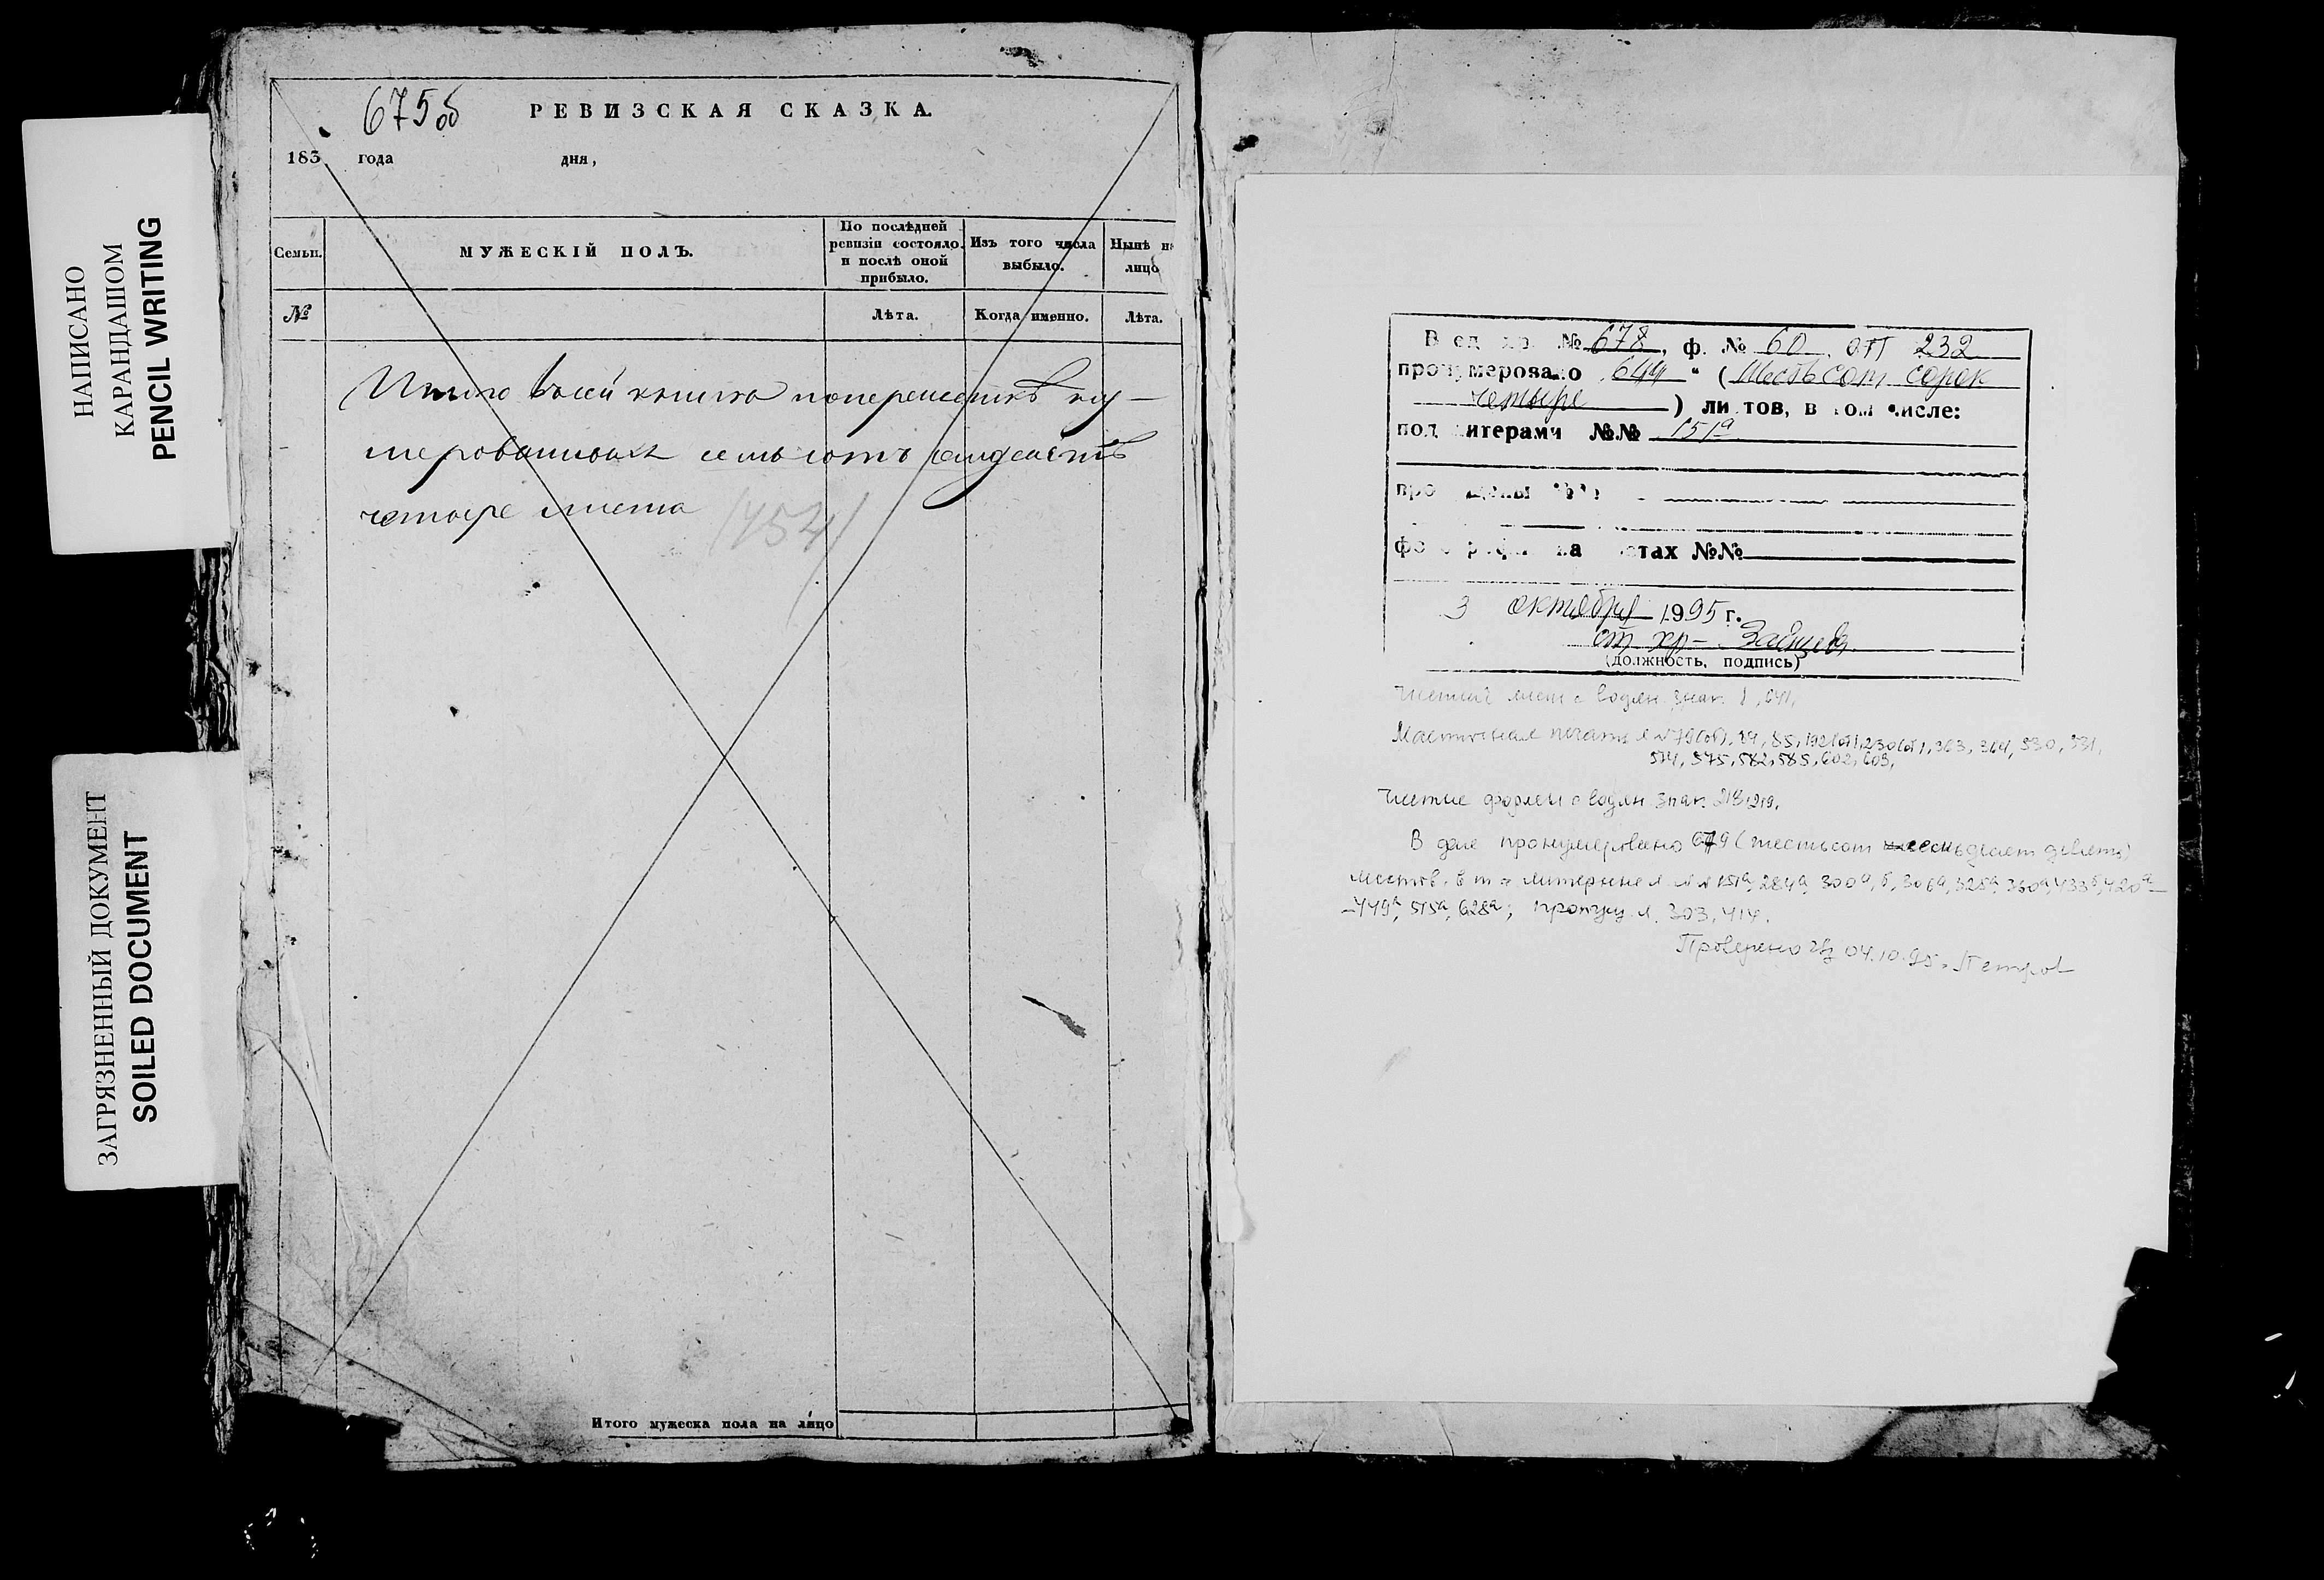 НАПИСАНО
КАРАНДАШОМ
PENCIL WRITING
ЗАГРЯЗНЕННЫЙ ДОКУМЕНТ
SOILED DOCUMENT
675об
РЕВИЗСКАЯ СКАЗКА.
183 года дня,
Семьи. МУЖЕСКІЙ ПОЛЪ. По послѣдней ревизіи состояло и послѣ оной прибыло. Изъ того числа выбыло. Нынѣ на лицо
№ Лѣта. Когда именно. Лѣта.
Итого всей книги попере ну-
мерованныхъ семьсотъ
четыре листа
Итого мужеска пола на лицо
В ед. хр. № 678, ф. № 60, оп 232
пронумеровано 644 (шестьсот сорок
четыре) листов, в том числе:
под литерами №№ 151а
пропущены №№
фотографии на листах №№
3 октября 1995 г.
(должность, подпись)
Чистый лист с водян. знак. 1, 641.
Мастичная печать л. 79(об), 84, 85, 192(об), 230(об), 363, 364, 530, 531,
574, 575, 582, 585, 602, 603.
Чистые с водян. знак. 218, 219.
В деле пронумеровано 679 (шестьсот семьдесят девять)
листов, в т.ч. литерные л. 151а, 284а, 300а,б, 306а, 325а, 360а, 433б, 420а-
-449а, 515а, 628а; пропущ. л. 303, 414.
Проверено 04.10.95. Петров